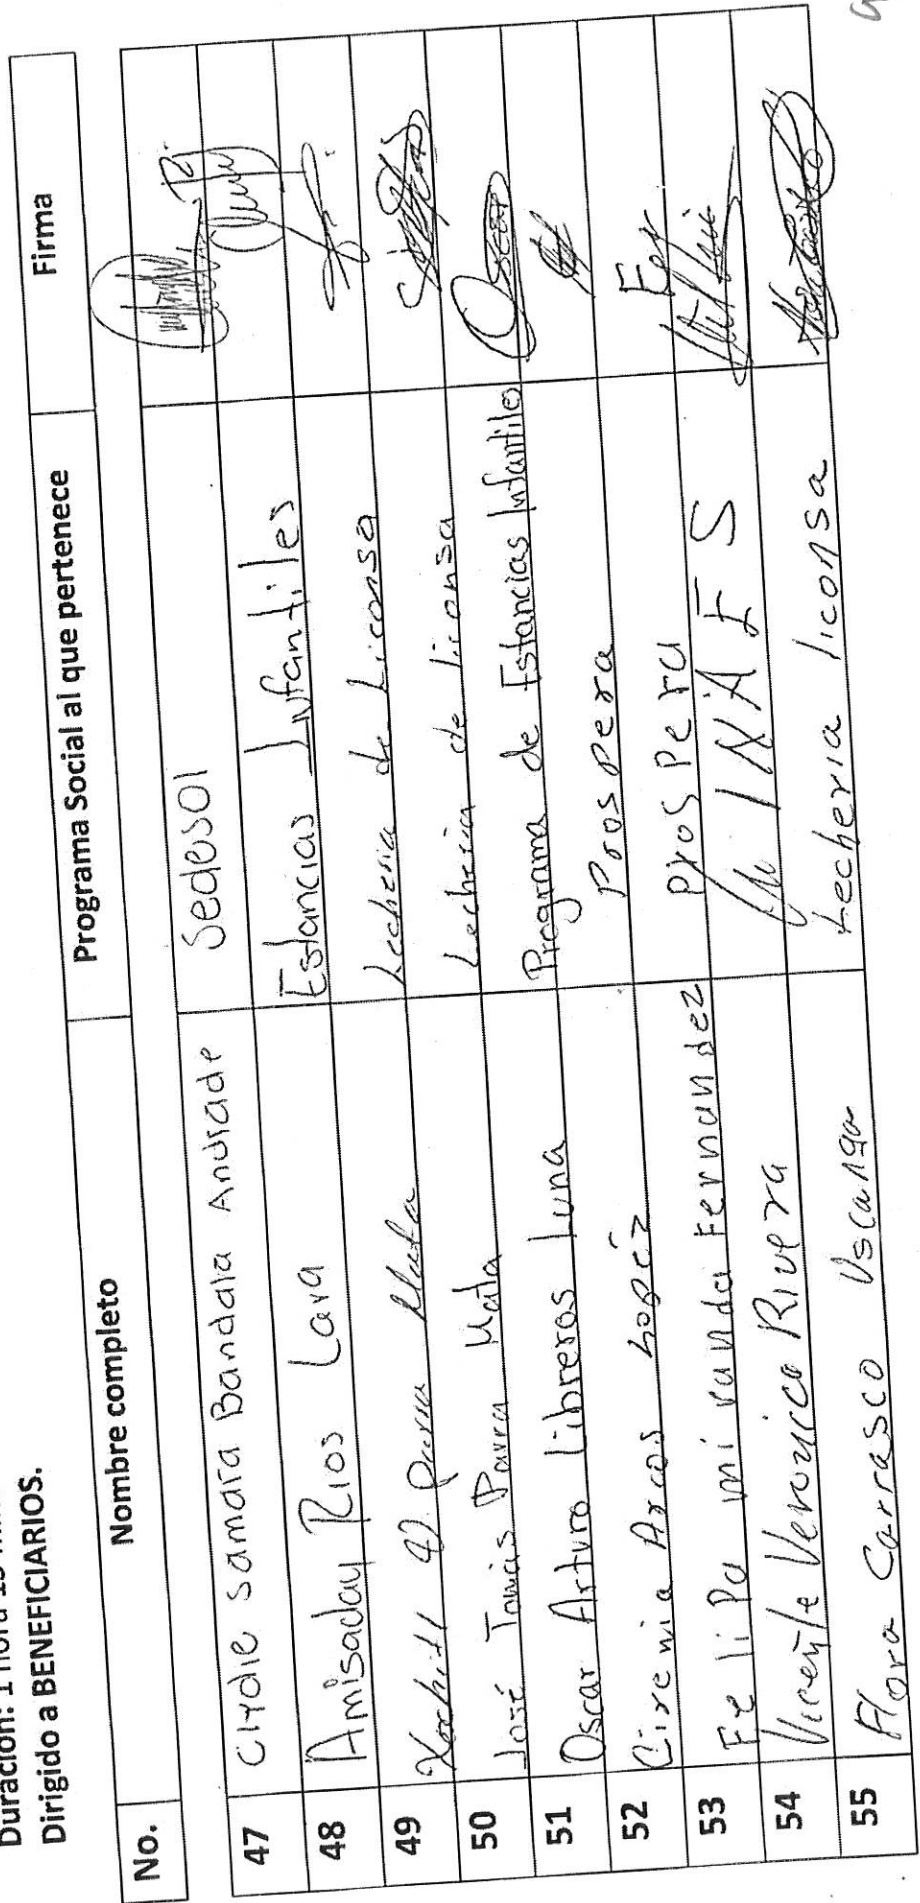 Duración: 1 hora 15
Dirigido a BENEFICIARIOS.
No. Nombre completo Programa Social al que pertenece Firma
47 Clydie samara Bandala Andrade Sedesol
48 Amisaday Rios Lara Estancias Infantiles
49 Xochitl D. Parra Mata Lecheria de Liconsa
50 José Tomás Parra Mata Lecheria de liconsa
51 Oscar Arturo Libreros Luna Programa de Estancias Infantiles Oscar
52 Cirenia Arcos Lopéz Prospera
53 Felipa miranda Fernandez prospera
54 Vicente Veronica Rivera INAES
55 Flora Carrasco Uscanga Lecheria liconsa